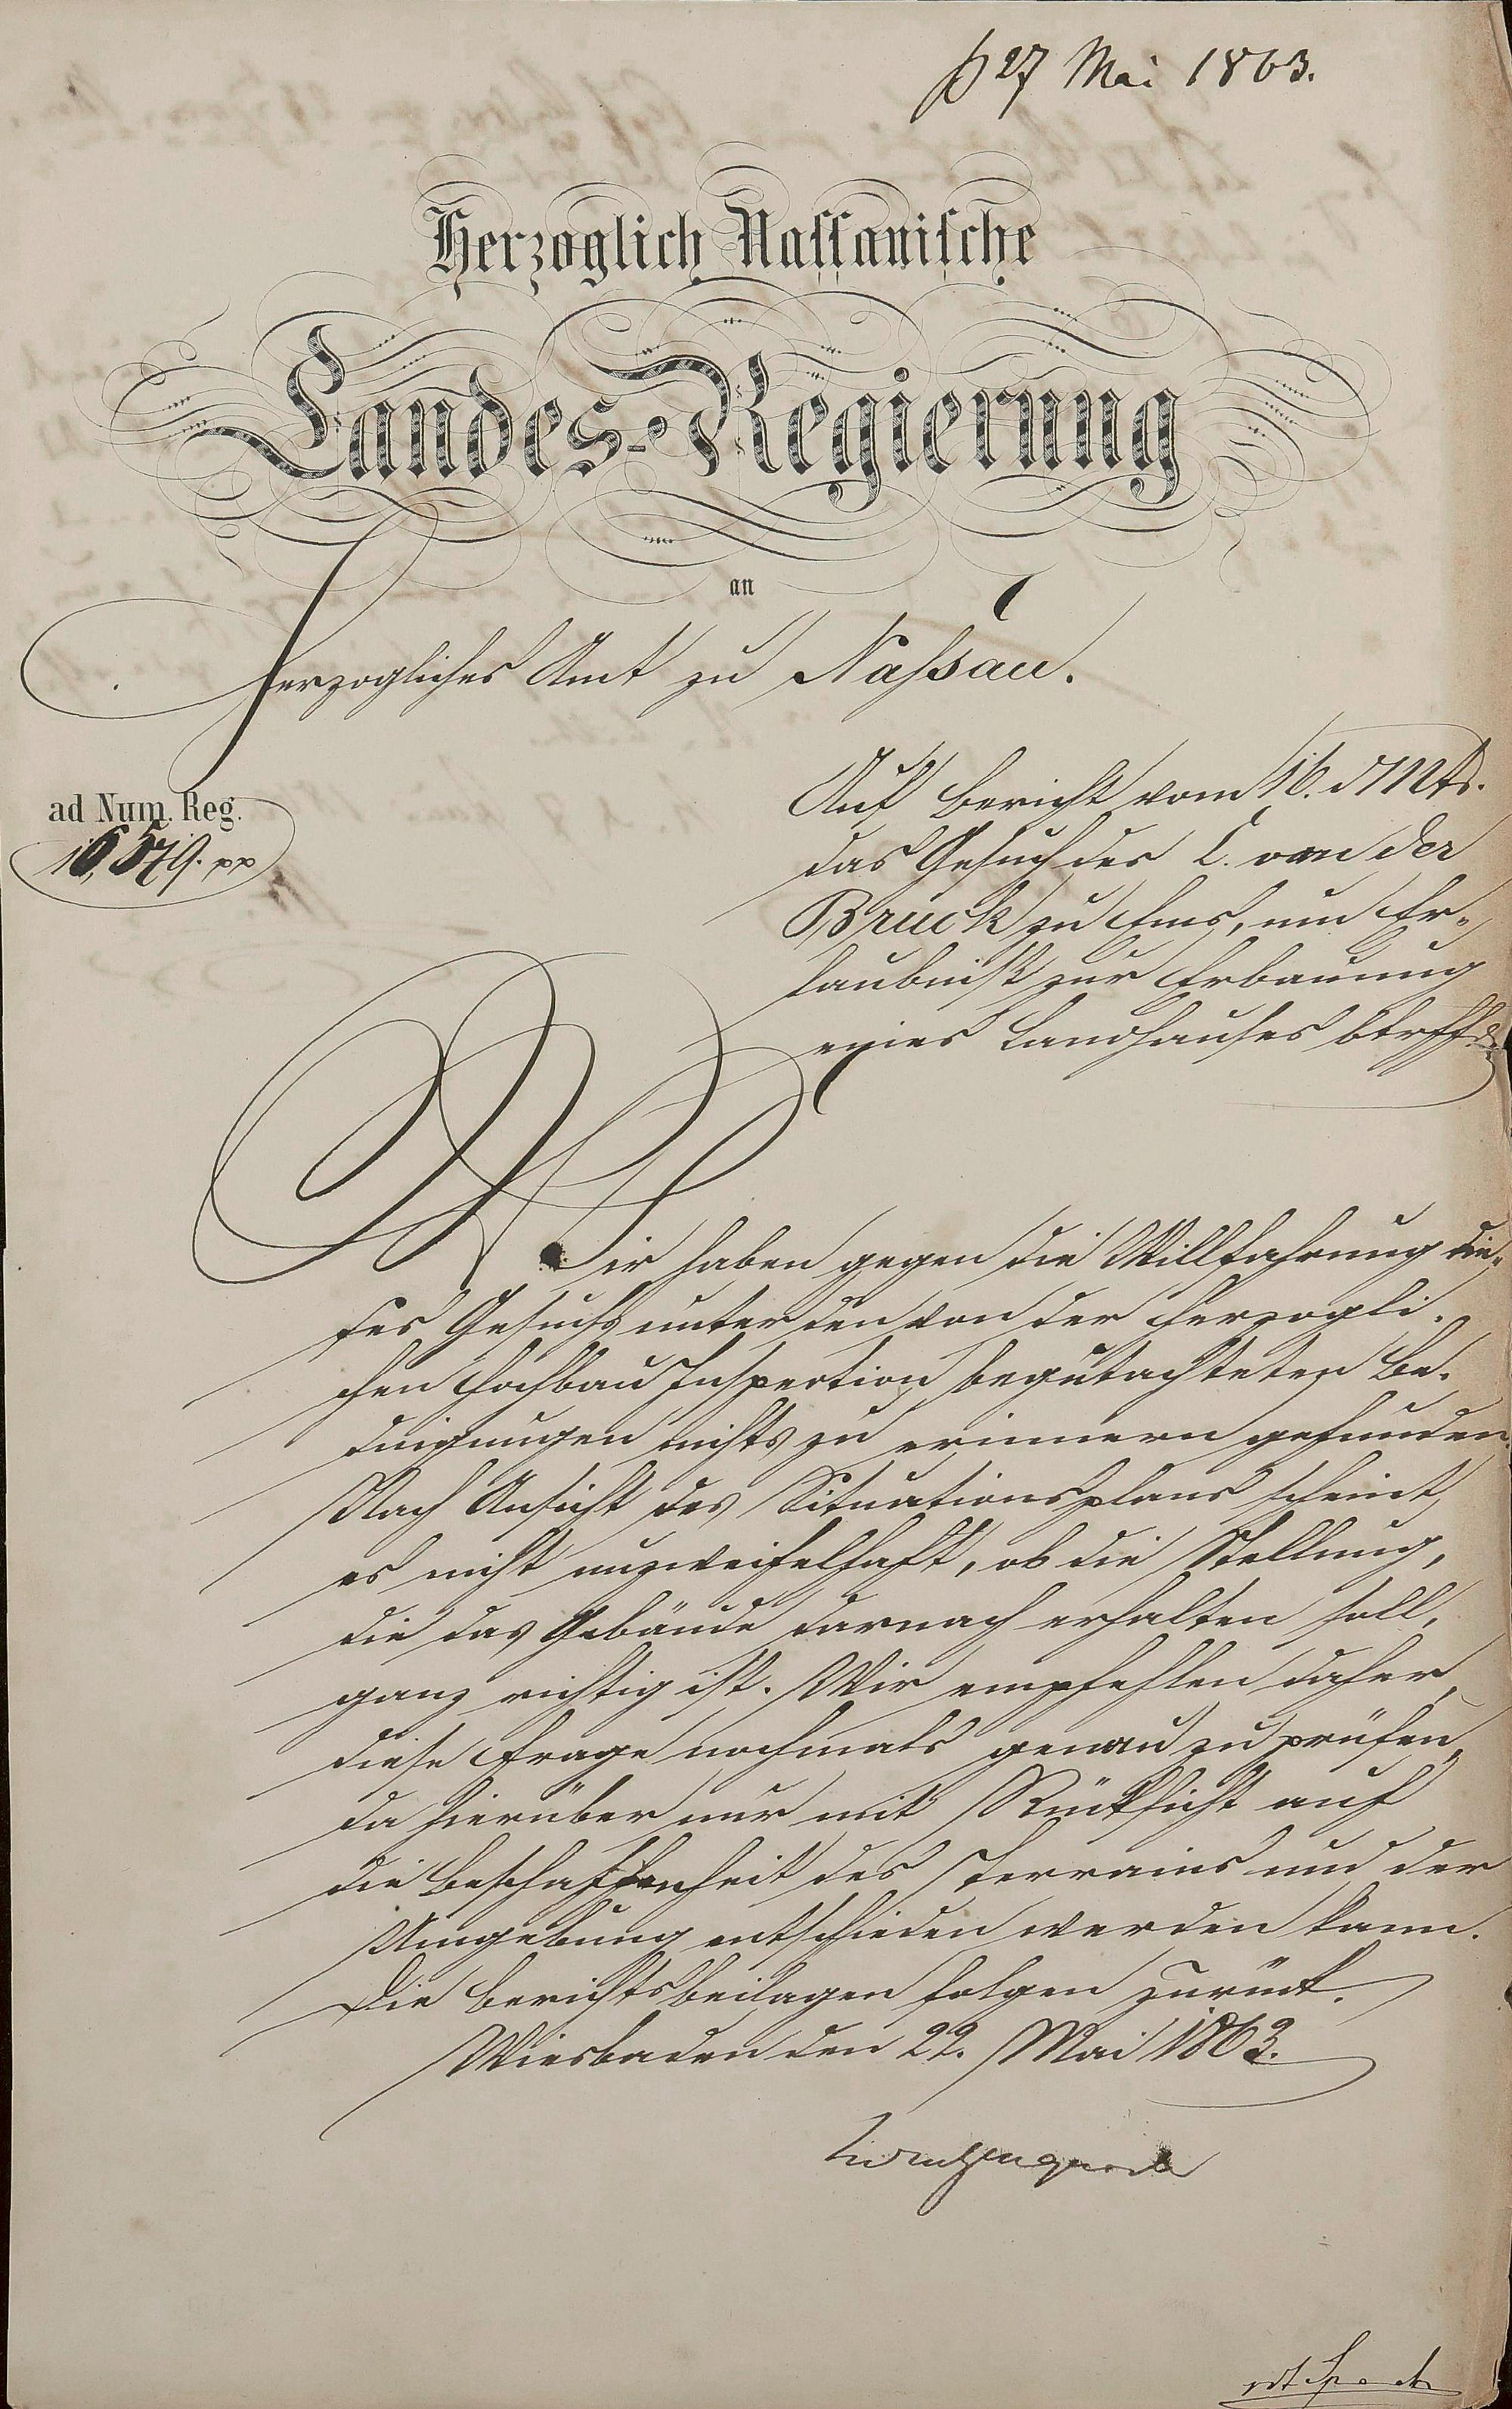 27 Mai 1863.
Herzoglich Nassauische
Landes-Regierung
an
Herzogliches Amt zu Naßau.
ad Num. Reg.
16,579. pp
Auf Bericht vom 16. d Mts.
das Gesuch des C. von der
Bruck zu Ems, um Er-
laubniß zur Erbauung
eines Landhauses btrffd.
Wir haben gegen die Willfahrung die-
ses Gesuchs unter den von der Herzogli-
chen Hochbau Inspection begutachteten Be-
dingungen nichts zu erinnern gefunden.
Nach Ansicht des Situationsplans scheint
es nicht unzweifelhaft, ob die Stellung,
die das Gebäude darnach erhalten soll,
ganz richtig ist. Wir empfehlen daher,
diese Frage nochmals genau zu prüfen,
da hierüber nur mit Rücksicht auf
die Beschaffenheit des Terrains und der
Umgebung entschieden werden kann.
Die Berichtsbeilagen folgen zurück.
Wiesbaden den 22. Mai 1863.